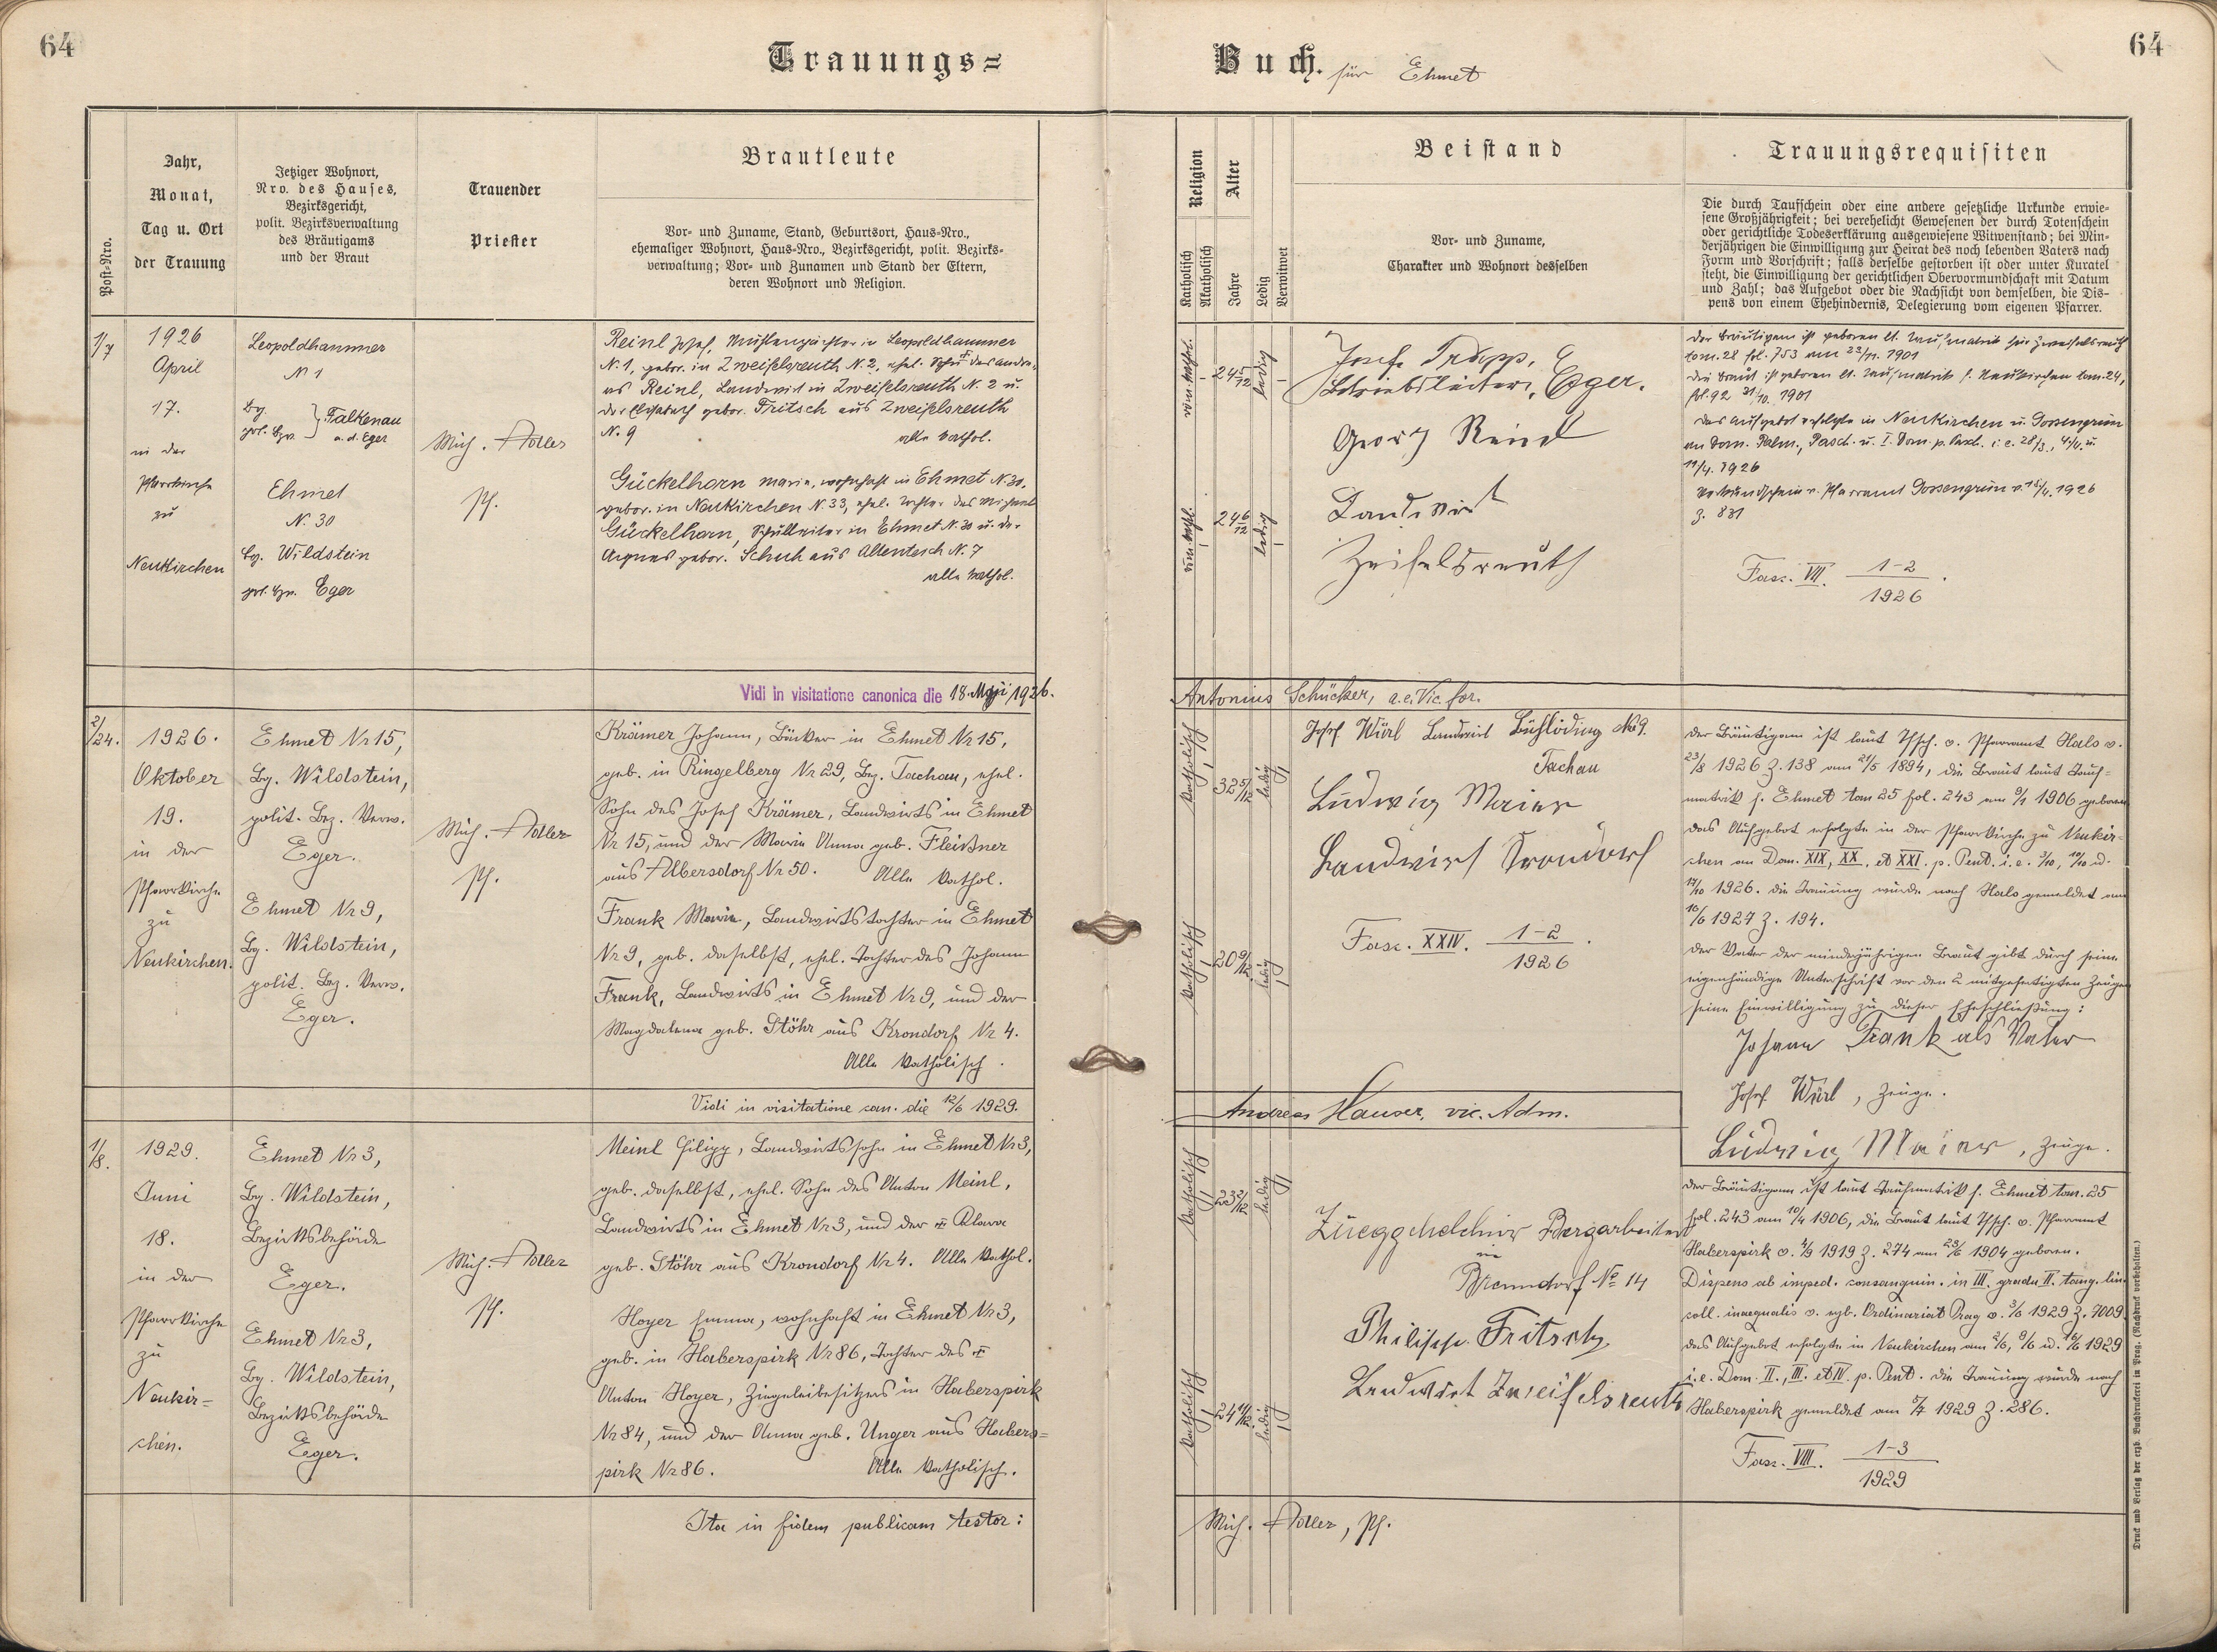 64
Trauungs=
Buch. für Ehmet
64
Post-Nro.
Jahr,
Monat,
Tag u. Ort
der Trauung
Jetziger Wohnort,
Nro. des Hauses,
Bezirksgericht,
polit. Bezirksverwaltung
des Bräutigams
und der Braut
Trauender
Priester
Brautleute
Vor- und Zuname, Stand, Geburtsort, Haus-Nro.,
ehemaliger Wohnort, Haus-Nro., Bezirksgericht, polit. Bezirks-
verwaltung; Vor- und Zunamen und Stand der Eltern,
deren Wohnort und Religion.
Religion
Katholisch
Akatholisch
Alter
Jahre
Ledig
Verwitwet
Beistand
Vor- und Zuname,
Charakter und Wohnort desselben
Trauungsrequisiten
Die durch Taufschein oder eine andere gesetzliche Urkunde erwie-
sene Großjährigkeit; bei verehelicht Gewesenen der durch Totenschein
oder gerichtliche Todeserklärung ausgewiesene Witwenstand; bei Min-
derjährigen die Einwilligung zur Heirat des noch lebenden Vaters nach
Form und Vorschrift; falls derselbe gestorben ist oder unter Kuratel
steht, die Einwilligung der gerichtlichen Obervormundschaft mit Datum
und Zahl; das Aufgebot oder die Nachsicht von demselben, die Dis-
pens von einem Ehehindernis, Delegierung vom eigenen Pfarrer.
1/7
1926
April
17.
in der
Pfarrkirche
zu
Neukirchen
Leopoldhammer
N 1
Bg.
pol. Bzv. } Falkenau
a. d. Eger
Ehmet
N. 30
Bg. Wildstein
pol. Bzv. Eger
Mich. Adler
Pf.
Reinl Josef, Mühlenpächter in Leopoldhammer
N. 1, gebor. in Zweifelsreuth N. 2, ehel. Sohn des Andre-
as Reinl, Landwirt in Zweifelsreuth N. 2 u.
der Elisabeth gebor. Fritsch aus Zweifelsreuth
N. 9 alle kathol.
Gückelhorn Marie, wohnhaft in Ehmet N. 30,
gebor. in Neukirchen N. 33, ehel. Tochter des Michael
Gückelhorn, Schulleiter in Ehmet N. 30 u. der
Agnes gebor. Schuh aus Altenteich N. 7
alle kathol.
röm. kathol.
24 5/12
ledig
röm. kathol.
24 6/12
ledig
Josef Trapp,
Betriebsleiter, Eger.
Georg Reinl
Landwirt
Zweifelsreuth
Der Bräutigam ist geboren lt. Taufmatrik für Zweifelsreuth
tom. 28 fol. 753 am 23/11. 1901
Die Braut ist geboren lt. Taufmatrik f. Neukirchen tom. 24,
fol. 92 31/10. 1901
Das Aufgebot erfolgte in Neukirchen u. Gossengrün
an Dom. Palm., Pasch. u. I. Dom. p. Pasch. i. e. 28/3., 4/4. u.
11/4. 1926
Verkündschein v. Pfarramt Gossengrün v. 15/4. 1926
Z. 831
Fasc. VII. 1-2
1926
Vidi in visitatione canonica die 18. Maji 1926.
Antonius Schücker, a.e. Vic. for.
2/24.
1926.
Oktober
19.
in der
Pfarrkirche
zu
Neukirchen.
Ehmet Nr 15,
Bg. Wildstein,
polit. Bez. Verw.
Eger.
Ehmet Nr 9,
Bg. Wildstein,
polit. Bez. Verw.
Eger.
Mich. Adler
Pf.
Krämer Johann, Bäcker in Ehmet Nr 15,
geb. in Ringelberg Nr 29, Bez. Tachau, ehel.
Sohn des Josef Krämer, Landwirts in Ehmet
Nr 15, und der Maria Anna geb. Fleißner
aus Albersdorf Nr 50. Alle kathol.
Frank Marie, Landwirtstochter in Ehmet
Nr 9, geb. daselbst, ehel. Tochter des Johann
Frank, Landwirts in Ehmet Nr 9, und der
Magdalena geb. Stöhr aus Krondorf Nr 4.
Alle katholisch.
katholisch
32 5/12
ledig
katholisch
20 9/12
ledig
Josef Würl Landwirt No 9.
Tachau
Ludwig Maier
Landwirt Krondorf
Fasc. XXIV. 1-2
1926
Der Bräutigam ist laut Tfsch. v. Pfarramt Hals v.
23/8 1926 Z. 138 am 21/5 1894, die Braut laut Tauf-
matrik f. Ehmet tom 25 fol. 243 am 9/1 1906 geboren
Das Aufgebot erfolgte in der Pfarrkirche zu Neukir-
chen am Dom. XIX, XX. et XXI. p. Pent. i. e. 3/10, 10/10 u.
17/10 1926. Die Trauung wurde nach Hals gemeldet am
16/6 1927 Z. 194.
Der Vater der minderjährigen Braut gibt durch seine
eigenhändige Unterschrift vor den 2 mitgefertigten Zeugen
seine Einwilligung zu dieser Eheschließung:
Johann Frank als Vater
Josef Würl, Zeuge.
Ludwig Maier, Zeuge.
Vidi in visitatione can. die 12/6 1929.
Andreas Hauser, vic. Adm.
1/8.
1929.
Juni
18.
in der
Pfarrkirche
zu
Neukir=
chen.
Ehmet Nr 3,
Bg. Wildstein,
Bezirksbehörde
Eger.
Ehmet Nr 3,
Bg. Wildstein,
Bezirksbehörde
Eger.
Mich. Adler
Pf.
Meinl Filipp, Landwirtssohn in Ehmet Nr 3,
geb. daselbst, ehel. Sohn des Anton Meinl,
Landwirts in Ehmet Nr 3, und der + Klara
geb. Stöhr aus Krondorf Nr 4. Alle kathol.
Hoyer Emma, wohnhaft in Ehmet Nr 3,
geb. in Haberspirk Nr 86, Tochter des +
Anton Hoyer, Ziegeleibesitzers in Haberspirk
Nr 84, und der Anna geb. Unger aus Habers=
pirk Nr 86. Alle katholisch.
katholisch
23 2/12
ledig
katholisch
24 11/12
ledig
Bergarbeiter
in
No 14
Philipp Fritsch
Landwirt Zweifelsreuth
Der Bräutigam ist laut Taufmatrik f. Ehmet tom. 25
fol. 243 am 10/4 1906, die Braut laut Tfsch. v. Pfarramt
Haberspirk v. 4/9 1919 Z. 274 am 23/6 1904 geboren.
Dispens ab imped. consanguin. in III. gradu II. tang. lin.
coll. inaequalis v. egb. Ordinariat Prag v. 3/6 1929 Z. 7009.
Das Aufgebot erfolgte in Neukirchen am 2/6, 9/6 u. 16/6 1929
i. e. Dom. II., III. et IV. p. Pent. Die Trauung wurde nach
Haberspirk gemeldet am 5/7 1929 Z. 286.
Fasc. VIII. 1-3
1929
Ita in fidem publicam testor:
Mich. Adler, Pf.
Druck und Verlag der erzb. Buchdruckerei in Prag. (Nachdruck vorbehalten.)